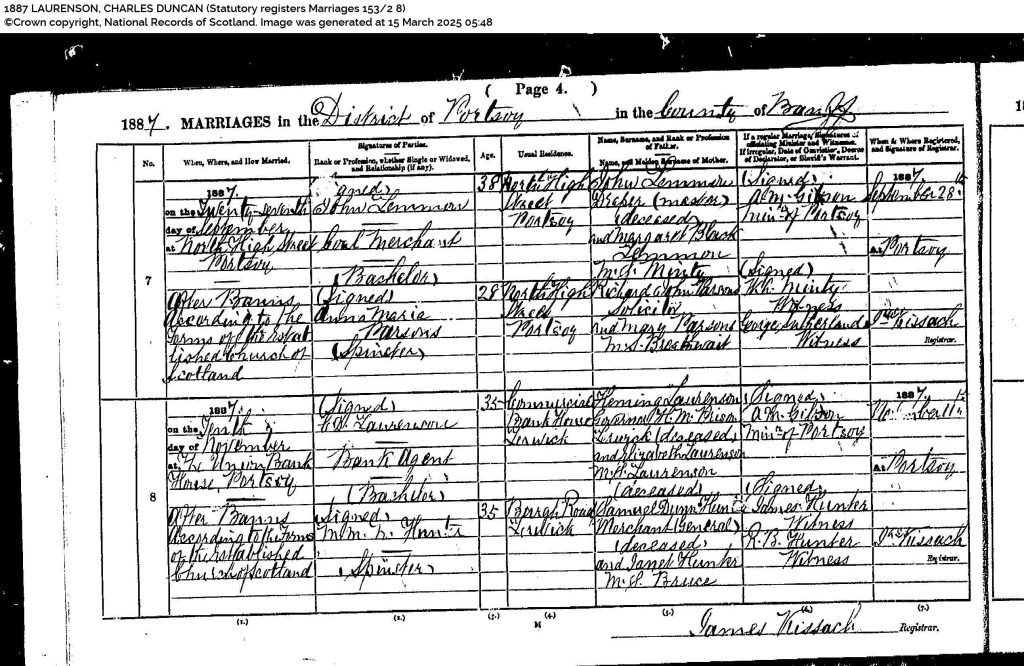 1887 LAURENSON, CHARLES DUNCAN (Statutory registers Marriages 153/2 8)
©Crown copyright, National Records of Scotland. Image was generated at 15 March 2025 05:48
( Page 4. )
1887. MARRIAGES in the District of Portsoy in the County of Banff
No.
When, Where, and How Married.
Signatures of Parties.
Rank or Profession, whether Single or Widowed, and Relationship (if any).
Age.
Usual Residence.
Name, Surname, and Rank or Profession of Father.
Name, and Maiden Surname of Mother.
If a regular Marriage, Signatures of officiating Minister and Witnesses.
If irregular, Date of Conviction, Decree of Declarator, or Sheriff's Warrant.
When & Where Registered, and Signature of Registrar.
7
1887.
on the Twenty-seventh
day of September
at North High Street
Portsoy
After Banns
According to the
Forms of the Estab
lished Church of
Scotland
John Lemmon
Coal Merchant
(Bachelor)
(Signed)
Anna Maria
Parsons
(Spinster)
38
28
North High
Street
Portsoy
North High
Street
Portsoy
John Lemmon
(master)
(deceased)
and Margaret Black
Lemmon
M.S. Minty
Richard John Parsons
Solicitor
and Mary Parsons
M.S.
(Signed)
A.M. Gibson
Min. of Portsoy
(Signed)
Minty
Witness
George Sutherland
Witness
1887.
September 28
At Portsoy
Kissach
Registrar.
8
1887.
on the Tenth
day of November
at The Union Bank
House, Portsoy
After Banns
According to the Forms
of the Established
Church of Scotland
(Signed)
C.D. Laurenson
Bank Agent
(Bachelor)
(Signed)
Hunter
(Spinster)
35
35
Commercial
Bank House
Lerwick
Burgh Road
Lerwick
Fleming Laurenson
Governor H.M. Prison
Lerwick (deceased)
and Elizabeth Laurenson
M.S. Laurenson
(deceased)
Samuel Dunn Hunter
Merchant (General)
(deceased)
and Janet Hunter
M.S. Bruce
(Signed)
A.M. Gibson
Min. of Portsoy
(Signed)
James Hunter
Witness
R.B. Hunter
Witness
1887.
At Portsoy
Kissach
Registrar.
(1.) (2.) (3.) (4.) (5.) (6.) (7.)
M
James Kissach Registrar.